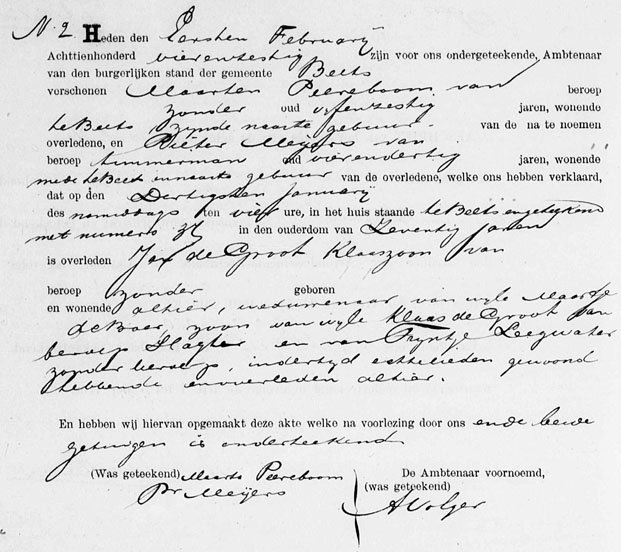 N. 2 Heden den Eersten February
Achttienhonderd vierenzestig zijn voor ons ondergeteekende, Ambtenaar
van den burgerlijken stand der gemeente Beets
verschenen Maarten Peereboom van beroep
zonder oud vyfenzestig jaren, wonende
te Beets zynde naaste gebuur van de na te noemen
overledene, en Pieter Meijers van
beroep timmerman oud vierendertig jaren, wonende
mede te Beets naaste gebuur van de overledene, welke ons hebben verklaard,
dat op den Dertigsten January
des namiddags ten vier ure, in het huis staande te Beets
met numero 37 in den ouderdom van Zeventig Jaren
is overleden Jan de Groot Klaaszoon van
beroep zonder geboren
en wonende alhier, weduwenaar van wyle Maartje
de Boer, zoon van wyle Klaas de Groot van
beroep Slagter en van Tryntje Leegwater
zonder beroep, indertyd echtelieden gewoond
hebbende en overleden alhier.
En hebben wij hiervan opgemaakt deze akte welke na voorlezing door ons en de beide
getuigen is onderteekend
(Was geteekend) Maarte Peereboom De Ambtenaar voornoemd,
Pr Meijers (was geteekend)
A Volger